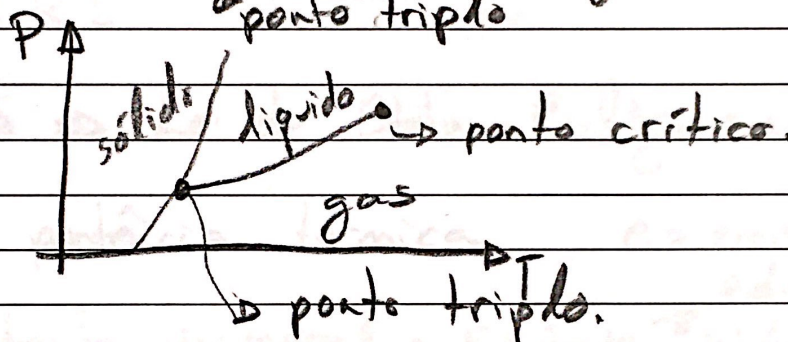 ponto triplo
P
sólido líquido → ponto crítico.
gas
T
→ ponto triplo.